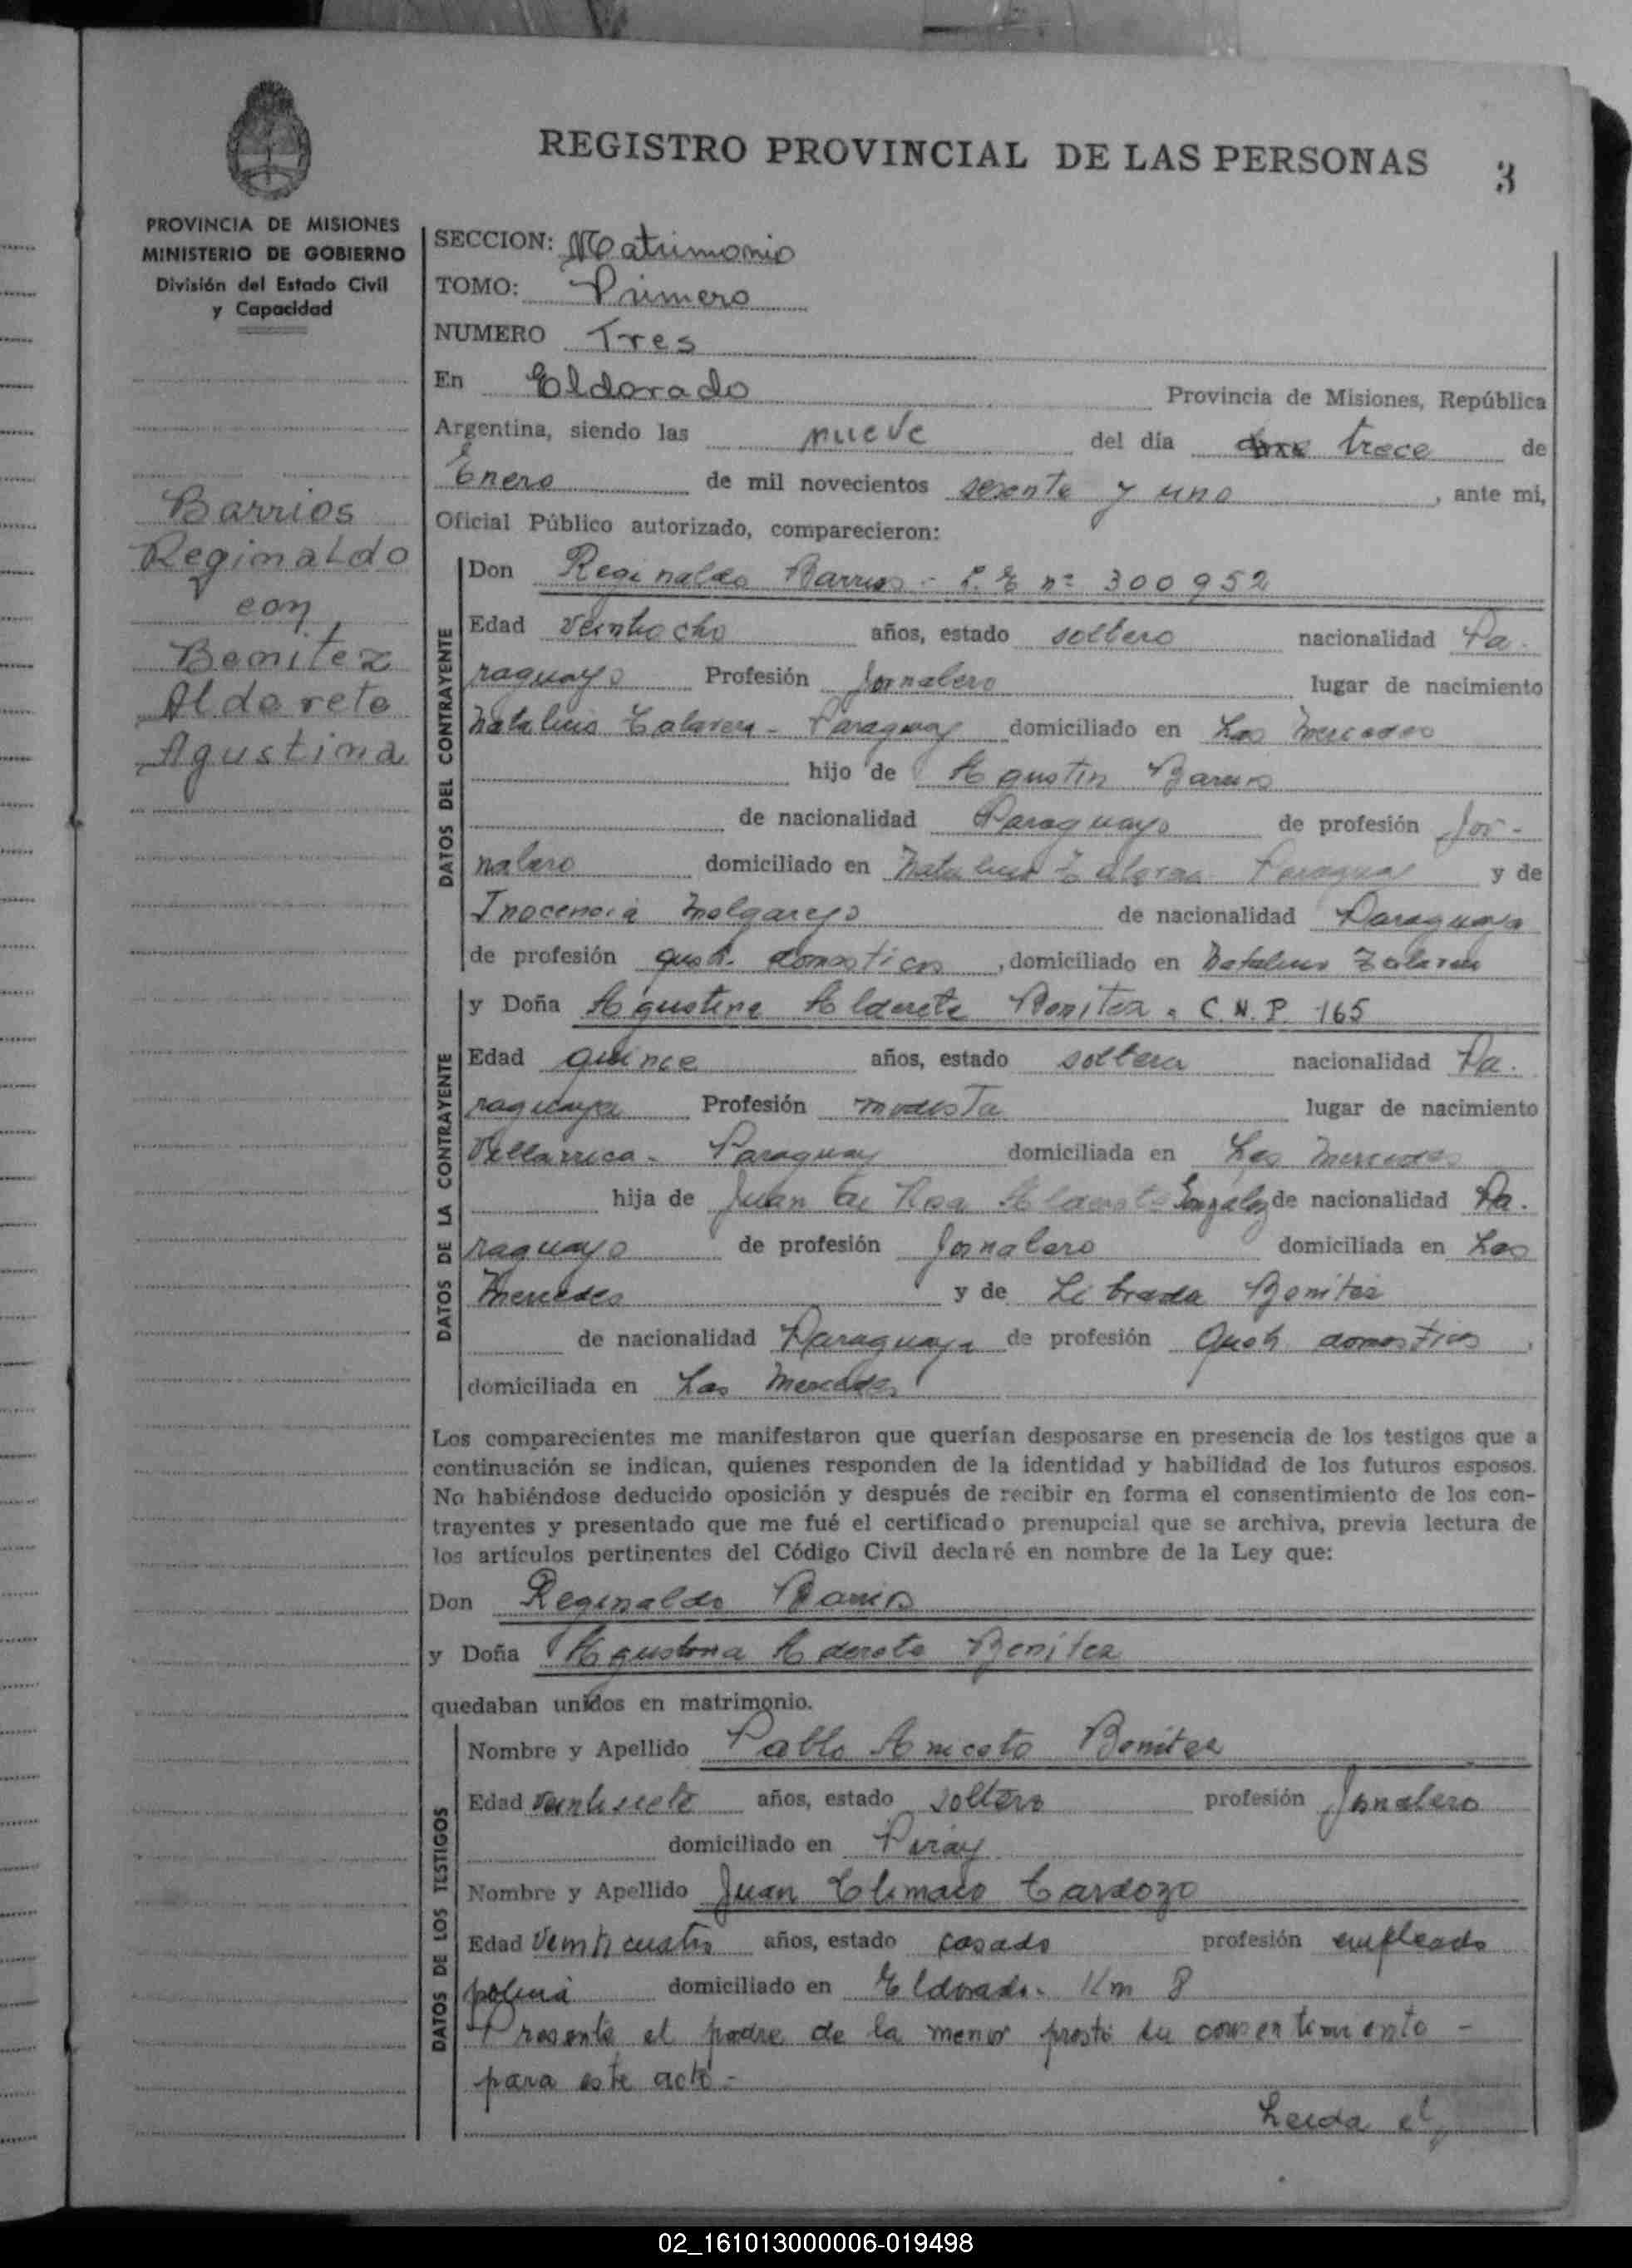 REGISTRO PROVINCIAL DE LAS PERSONAS
3
PROVINCIA DE MISIONES
MINISTERIO DE GOBIERNO
División del Estado Civil
y Capacidad
Barrios
Reginaldo
con
Benitez
Aldarete
Agustina
SECCION: Matrimonio
TOMO: Primero
NUMERO Tres
En Eldorado Provincia de Misiones, República
Argentina, siendo las nueve del día trece de
Enero de mil novecientos sesenta y uno, ante mi,
Oficial Público autorizado, comparecieron:
DATOS DEL CONTRAYENTE
Don Reginaldo Barrios - nº 300952
Edad veintiocho años, estado soltero nacionalidad Pa-
raguayo Profesión Jornalero lugar de nacimiento
Paraguay domiciliado en Las Mercedes
hijo de Agustin Barrios
de nacionalidad Paraguayo de profesión Jor-
nalero domiciliado en Paraguay y de
Inocencia Melgarejo de nacionalidad Paraguaya
de profesión queh. domesticos, domiciliado en
DATOS DE LA CONTRAYENTE
y Doña Agustina Alderete Benitez - C.N.P. 165
Edad quince años, estado soltera nacionalidad Pa-
raguaya Profesión modista lugar de nacimiento
Villarrica - Paraguay domiciliada en Las Mercedes
hija de Juan de Rosa Alderete González de nacionalidad Pa-
raguayo de profesión Jornalero domiciliada en Las
Mercedes y de Librada Benitez
de nacionalidad Paraguaya de profesión Queh domesticos,
domiciliada en Las Mercedes
Los comparecientes me manifestaron que querían desposarse en presencia de los testigos que a
continuación se indican, quienes responden de la identidad y habilidad de los futuros esposos.
No habiéndose deducido oposición y después de recibir en forma el consentimiento de los con-
trayentes y presentado que me fué el certificado prenupcial que se archiva, previa lectura de
los artículos pertinentes del Código Civil declaré en nombre de la Ley que:
Don Reginaldo Barrios
y Doña Agustina Alderete Benitez
quedaban unidos en matrimonio.
DATOS DE LOS TESTIGOS
Nombre y Apellido Pablo Aniceto Benitez
Edad veintisiete años, estado soltero profesión Jornalero
domiciliado en Piray
Nombre y Apellido Juan Climaco Cardozo
Edad veinticuatro años, estado casado profesión empleado
policia domiciliado en Eldorado - Km 8
Presente el padre de la menor prestó su consentimiento -
para este acto -
Leida el
02_161013000006-019498